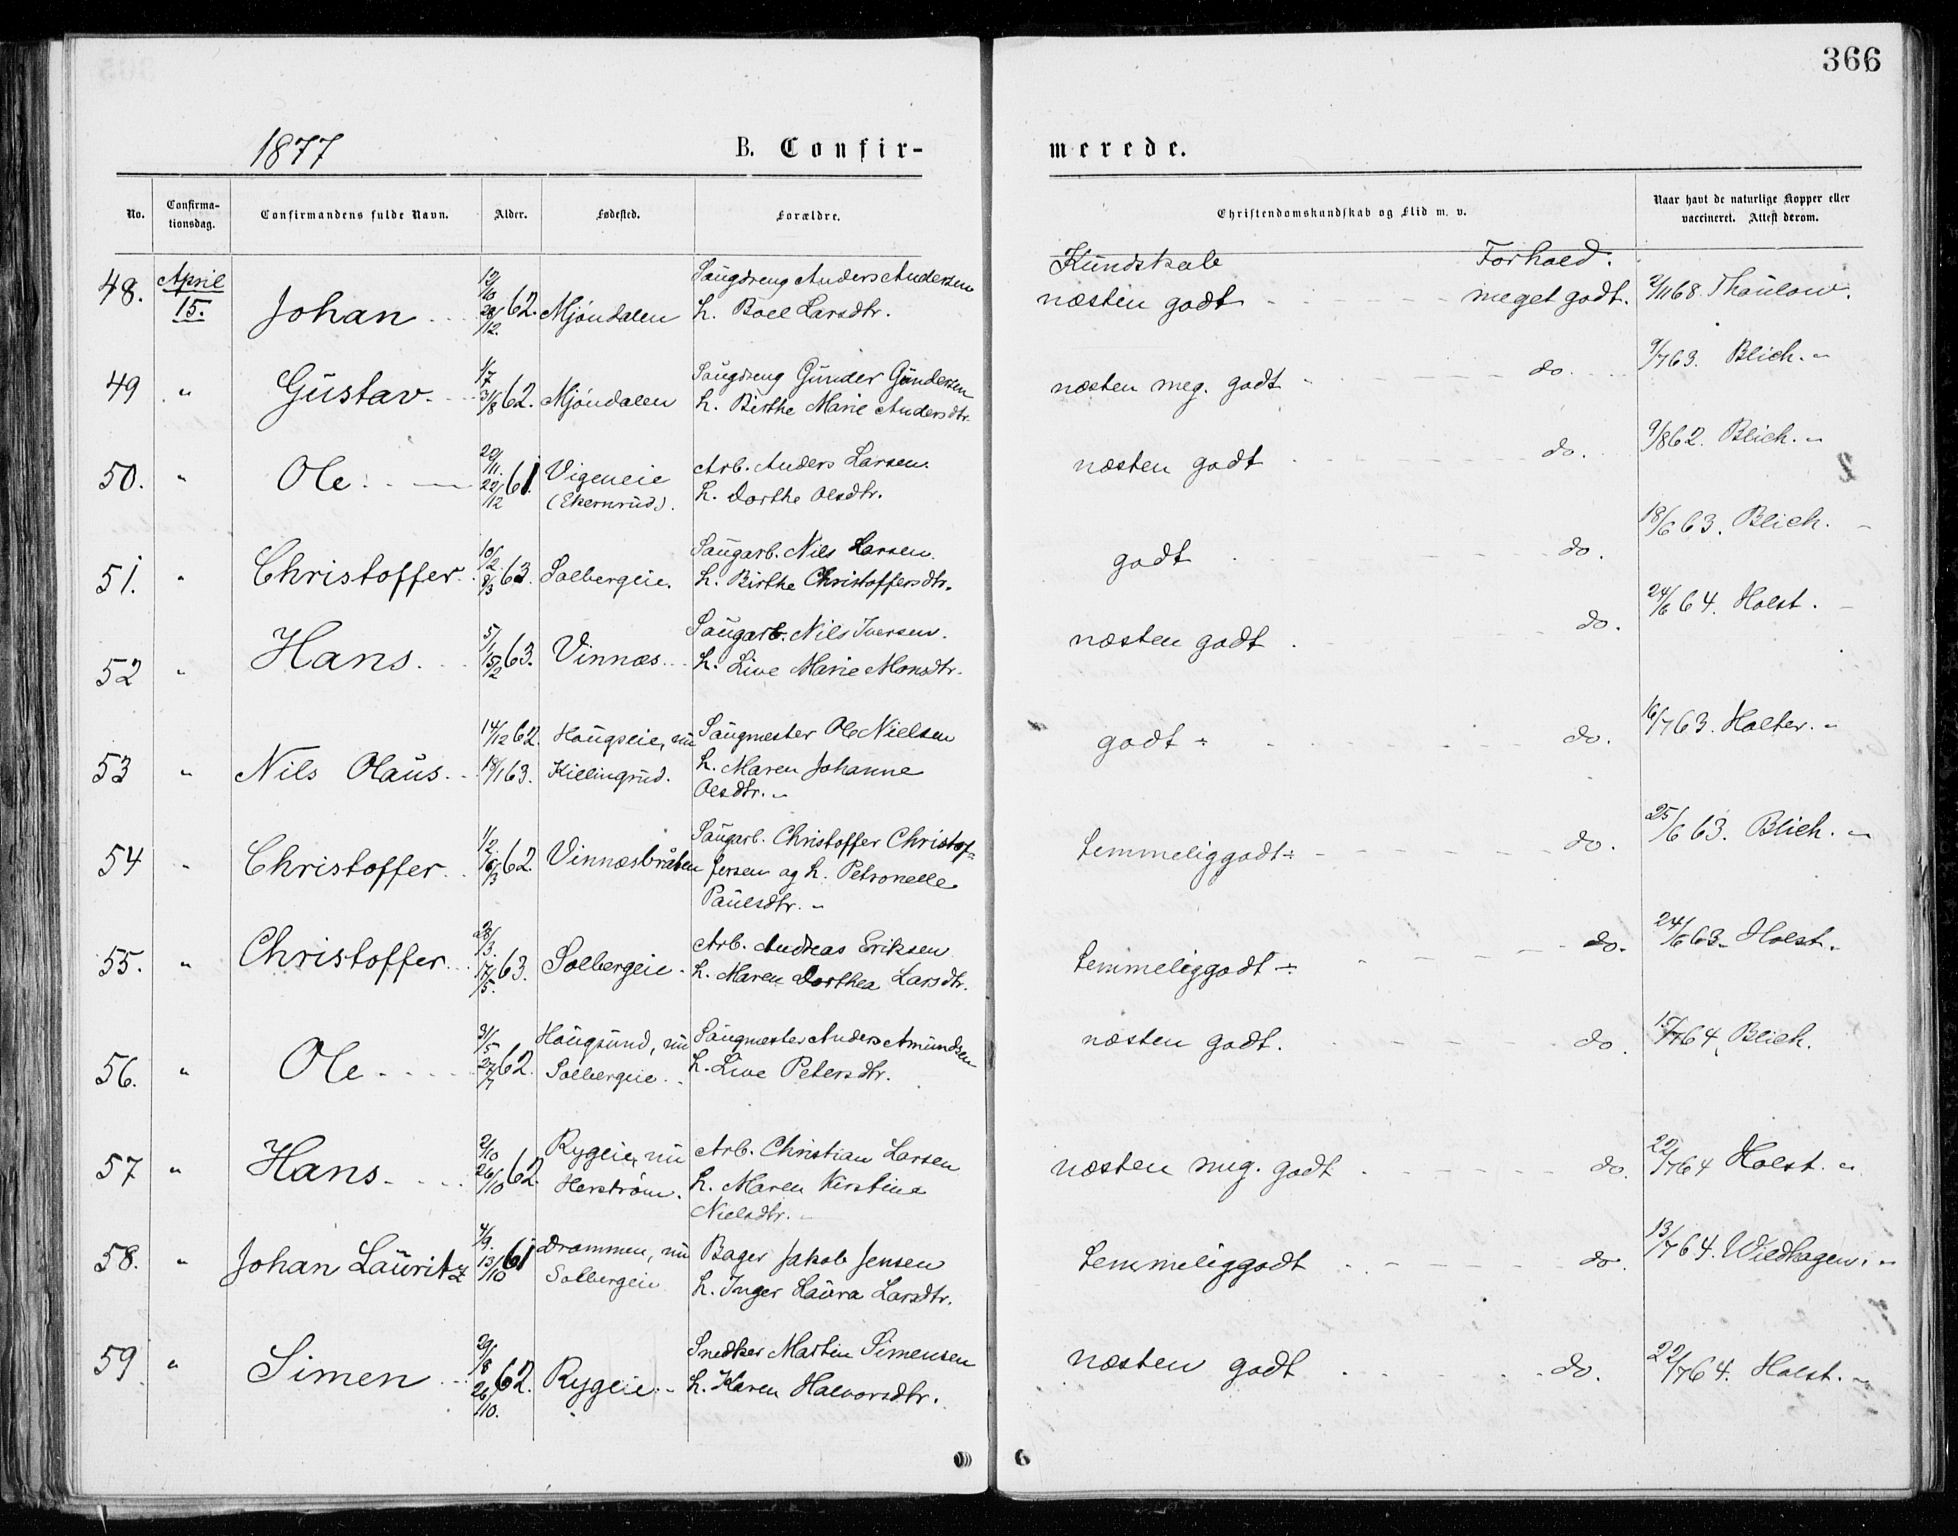 366
1877
B. Confir-
merede.
No.
Confirma-
tionsdag.
Confirmandens fulde Navn.
Alder.
Fødested.
Forældre.
Christendomskundskab og Flid m. v.
Naar havt de naturlige Kopper eller
vaccineret. Attest derom.
Kundskab Forhold.
48. April 15. Johan 12/10 28/12 62. Mjøndalen
Saugdreng Anders Andersen
h. Boel Larsdtr.
næsten godt meget godt. 2/11 68. Thaulow.
49 " Gustav. 1/7 31/8 62. Mjøndalen
Saugdreng Gunder Gundersen
h. Birthe Marie Andersdtr.
næsten meg. godt do. 9/7 63. Blich. "
50. " Ole. 20/11. 22/12 61. Vigeneie
(Ekernrud).
Arb. Anders Larsen.
h. Dorthe Olsdtr.
næsten godt do. 9/8 62. Blich. "
51. " Christoffer. 10/2. 8/3 63. Solbergeie.
Saugarb. Nils Larsen.
h. Birthe Christoffersdtr.
godt do. 18/6 63. Blich.
52 " Hans. 5/1 15/2 63. Vinnæs.
Saugarb. Nils Iversen.
h. Live Marie Monsdtr.
næsten godt do. 24/6 64. Holst.
53 " Nils Olaus. 14/12 62. 18/1 63. Hougseie, nu
Killingrud.
Saugmester Ole Nielsen
h. Maren Johanne
Olsdtr. "
godt ÷ do. 16/7 63. Holter. "
54 " Christoffer. 1/2. 16/3 62. Vinnæsbråten
Saugarb. Christoffer Christof-
fersen og h. Petronelle
Paulsdtr. "
temmeliggodt ÷ do. 25/6 63. Blich. "
55. " Christoffer. 23/3. 17/5. 63. Solbergeie
Arb. Andreas Eriksen
h. Maren Dorthea Larsdtr.
temmeliggodt ÷ do. 24/6 63. Holst.
56. " Ole 31/5 27/7 62. Hougsund, nu
Solbergeie.
Saugmester Anders Amundsen
h. Live Petersdtr.
næsten godt. do. 15/7 64. Blich.
57 " Hans. 2/10 26/10 62. Rygeie, nu
Herstrøm.
Arb. Christian Larsen
h. Maren Kirstine
Nielsdtr.
næsten meg. godt do. 22/7 64 Holst. "
58. " Johan Lauritz 4/9. 13/10 61 Drammen, nu
Solbergeie
Bager Jakob Jensen
h. Inger Laura Larsdtr.
temmeliggodt do. 13/7 64. Wildhagen. "
59 " Simen 29/8 26/10. 62. Rygeie.
Snedker Martin Simensen
h. Karen Halvorsdtr.
næsten godt do. 22/7 64. Holst. "